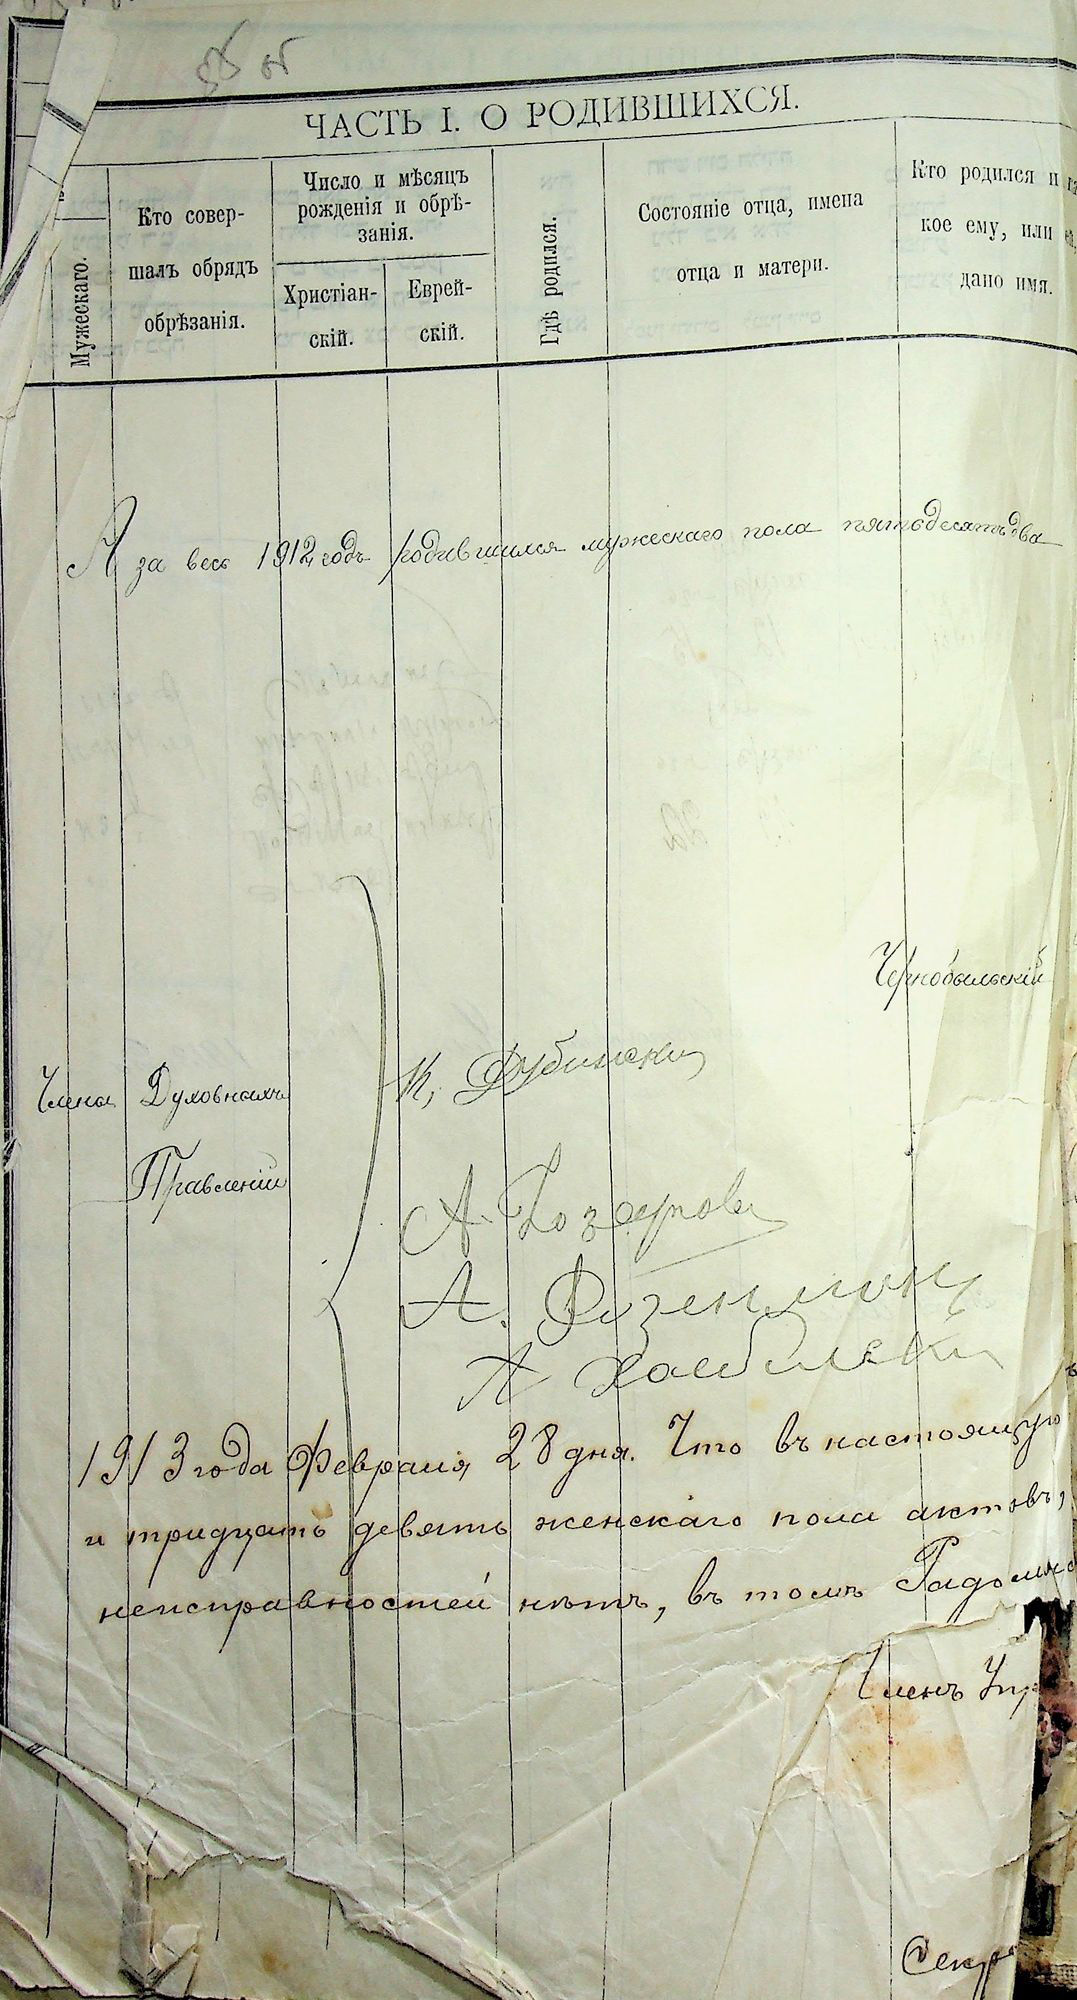 55 об
ЧАСТЬ I. О РОДИВШИХСЯ.
Мужескаго.
Кто совер-
шалъ обрядъ
обрѣзанія.
Число и мѣсяцъ
рожденія и обрѣ-
занія.
Христіан-
скій.
Еврей-
скій.
Гдѣ родился.
Состояніе отца, имена
отца и матери.
Кто родился и
кое ему, или
дано имя.
А за весь 1912 годъ родившихся мужескаго пола пятьдесятъ два
Чернобыльскій
Члены Духовнаго
Правленія
К. Дубински
А.
А. Розенман
А
1913 года Февраля 28 дня. Что въ настоящую
и тридцать девять женскаго пола актовъ,
неисправностей нѣтъ, въ томъ Радомы
Членъ Упр
Секр